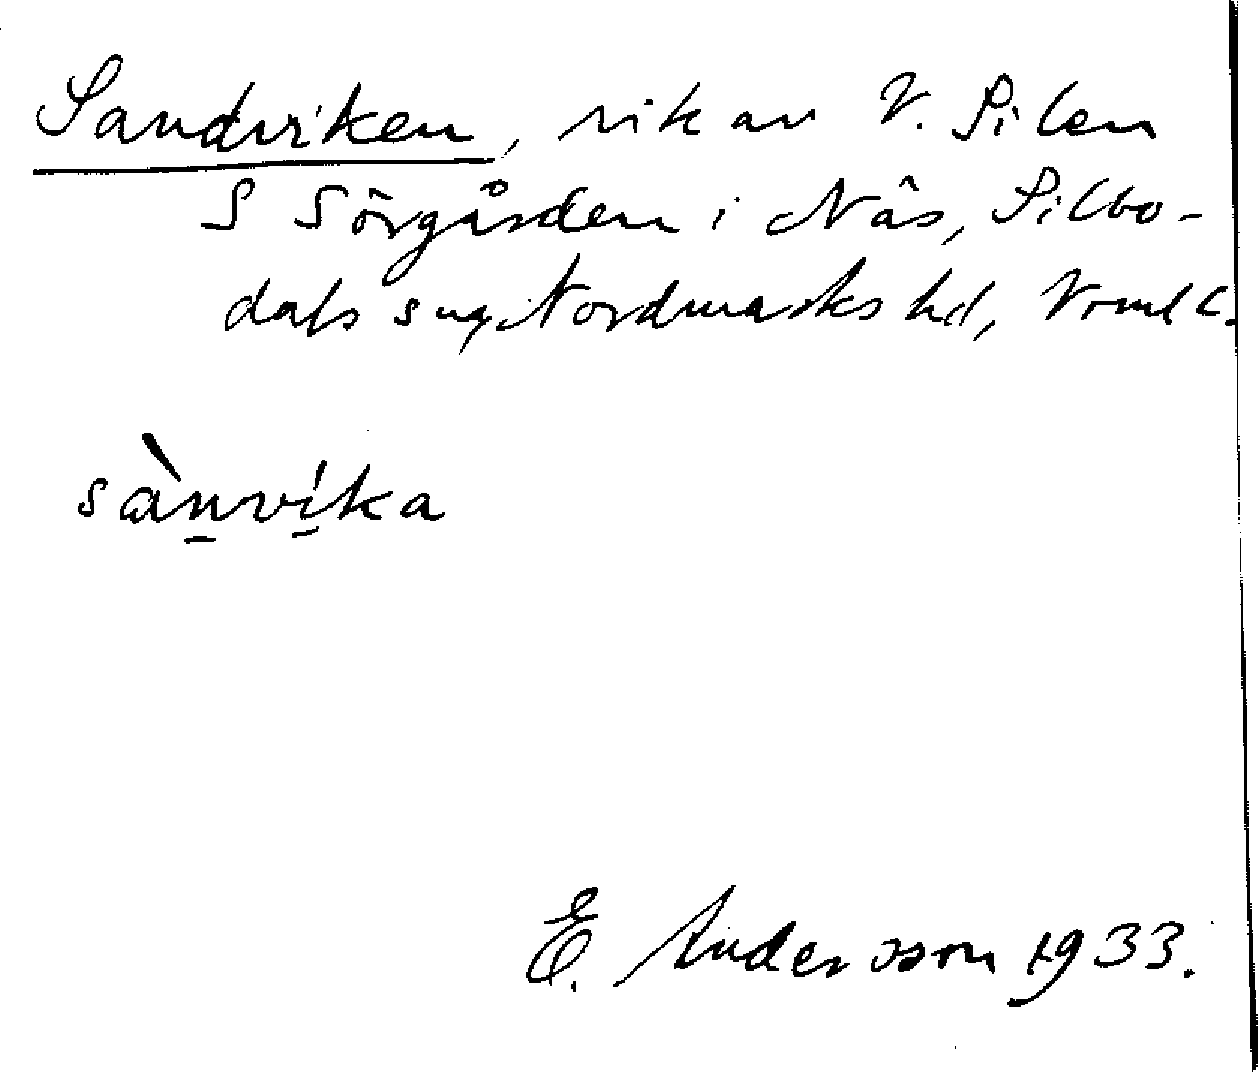 Sandviken, vik av V. Silen
S Sörgården i Näs, Silbo-
dals sn, Nordmarks hd, Vrml.
sànvíka
E. Andersson 1933.